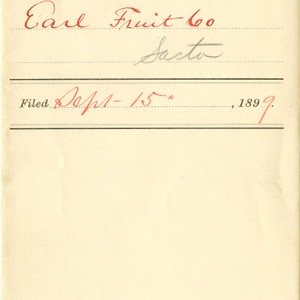 Earl Fruit Co
Sacto
Filed Sept- 15" , 1899.